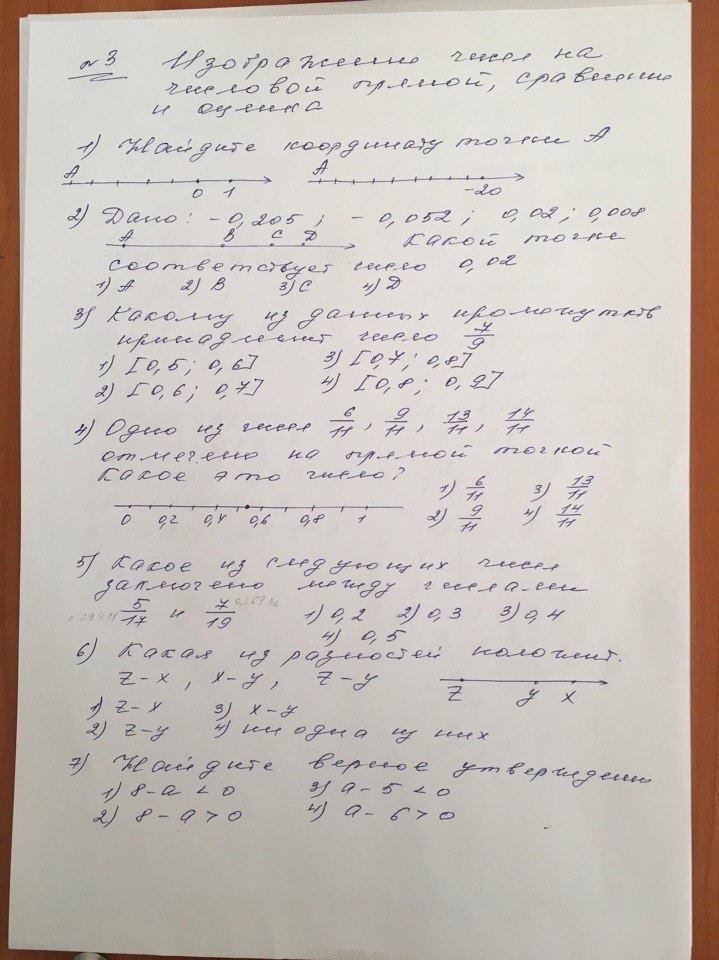 №3 Изображение чисел на
числовой прямой, сравнение
и оценка
1) Найдите координату точки A
A 0 1 A -20
2) Дано: -0,205; -0,052; 0,02; 0,008
A B C D Какой точке
соответствует число 0,02
1) A 2) B 3) C 4) D
3) Какому из данных промежутков
принадлежит число 7/9
1) [0,5; 0,6] 3) [0,7; 0,8]
2) [0,6; 0,7] 4) [0,8; 0,9]
4) Одно из чисел 6/11, 9/11, 13/11, 14/11
отмечено на прямой точкой
Какое это число?
1) 6/11 3) 13/11
0 0,2 0,4 0,6 0,8 1 2) 9/11 4) 14/11
5) Какое из следующих чисел
заключено между числами
5/17 и 7/19 1) 0,2 2) 0,3 3) 0,4
4) 0,5
6) Какая из разностей положит.
z-x, x-y, z-y z y x
1) z-x 3) x-y
2) z-y 4) ни одна из них
7) Найдите верное утверждение
1) 8-a<0 3) a-5<0
2) 8-a>0 4) a-6>0